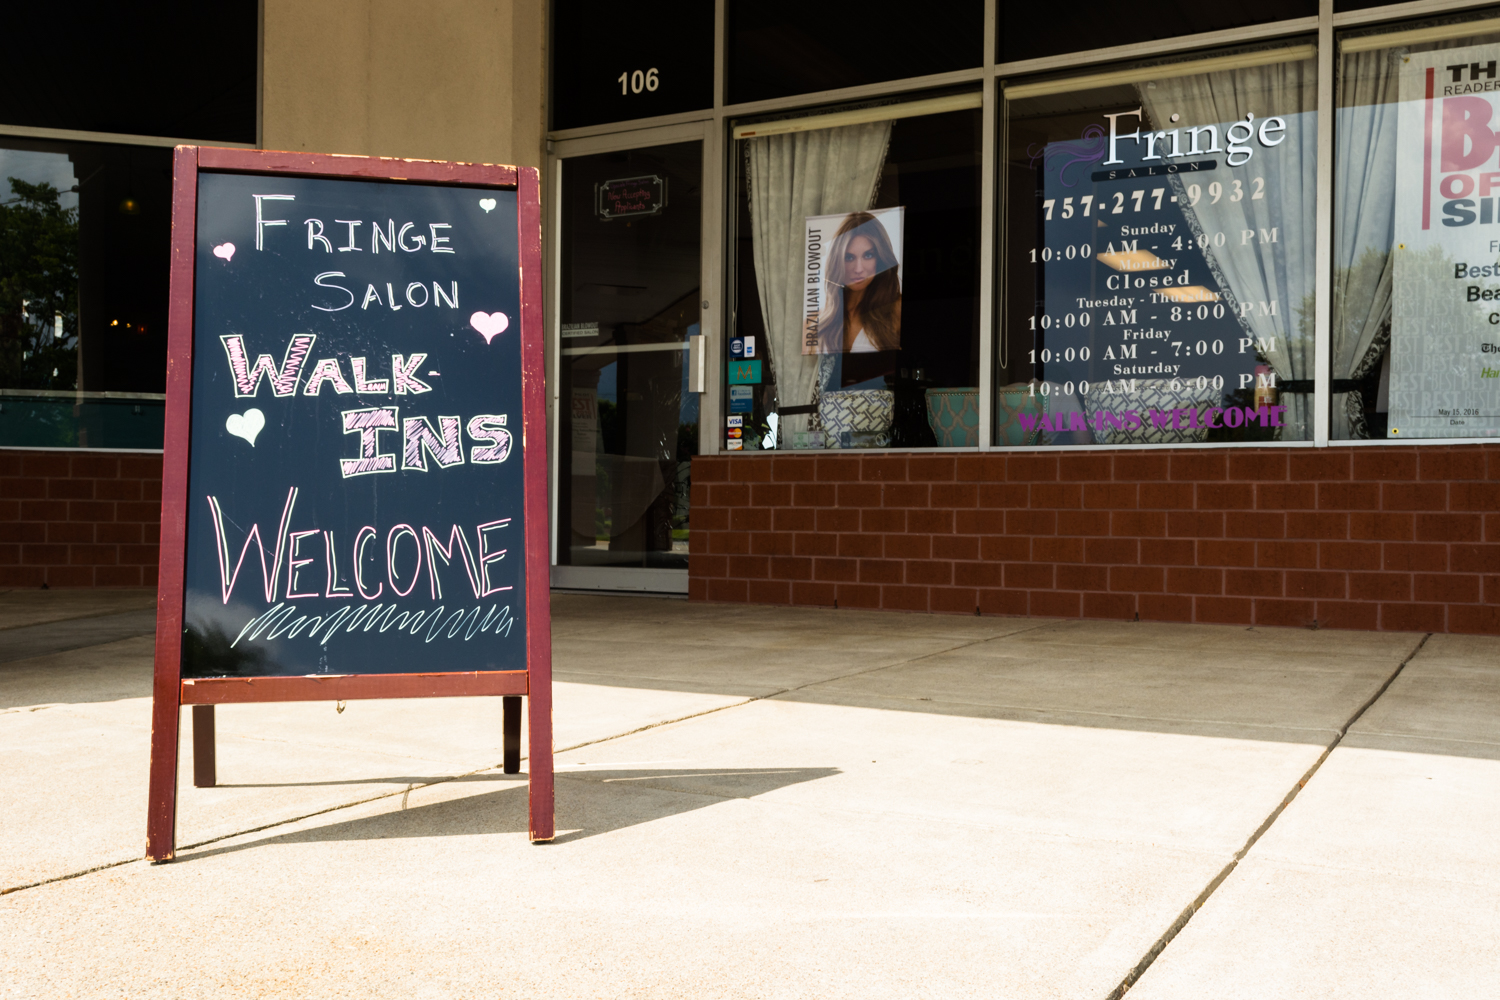 FRINGE
SALON
WALK-
INS
WELCOME
106
Now Accepting
Applicants
BRAZILIAN BLOWOUT
BRAZILIAN BLOWOUT
VISA
Fringe
SALON
757-277-9932
Sunday
10:00 AM - 4:00 PM
Monday
Closed
Tuesday - Thursday
10:00 AM - 8:00 PM
Friday
10:00 AM - 7:00 PM
Saturday
10:00 AM - 6:00 PM
WALK-INS WELCOME
TH
READER
B
OF
SI
F
Best
Bea
C
The
Har
May 15, 2016
Date